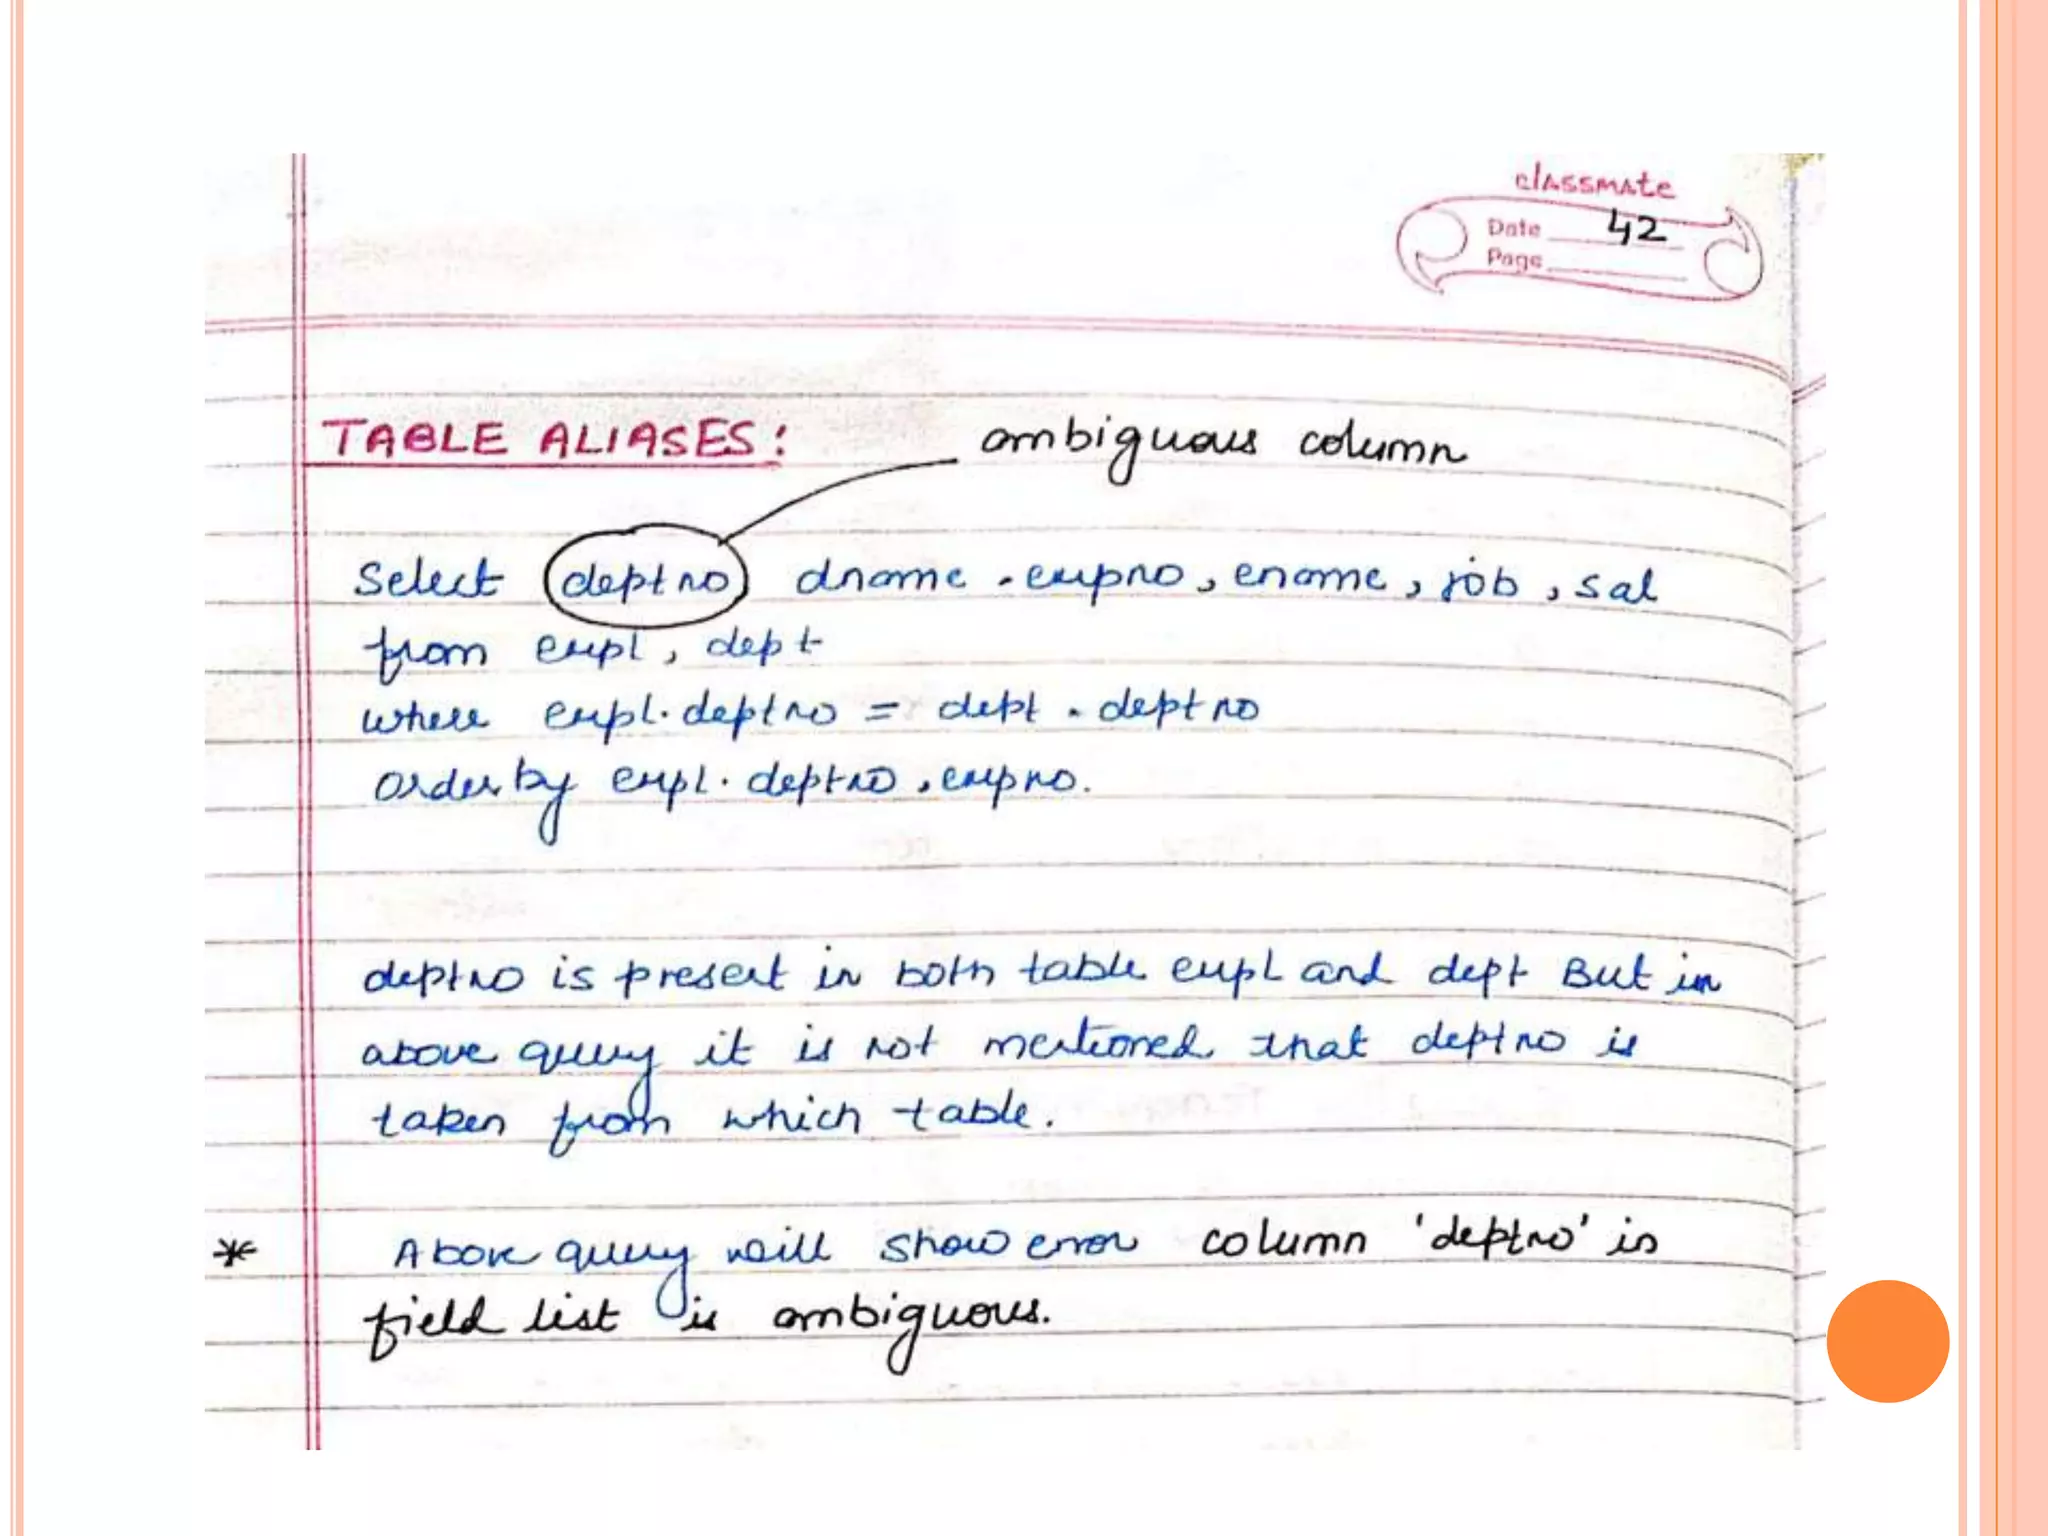 classmate
Date 42
Page
TABLE ALIASES: ambiguous column
Select deptno dname .empno, ename, job, sal
from empl, dept
where empl.deptno = dept.deptno
order by empl.deptno, empno.
deptno is present in both table empl and dept But in
above query it is not mentioned that deptno is
taken from which table.
* Above query will show error column 'deptno' in
field list is ambiguous.